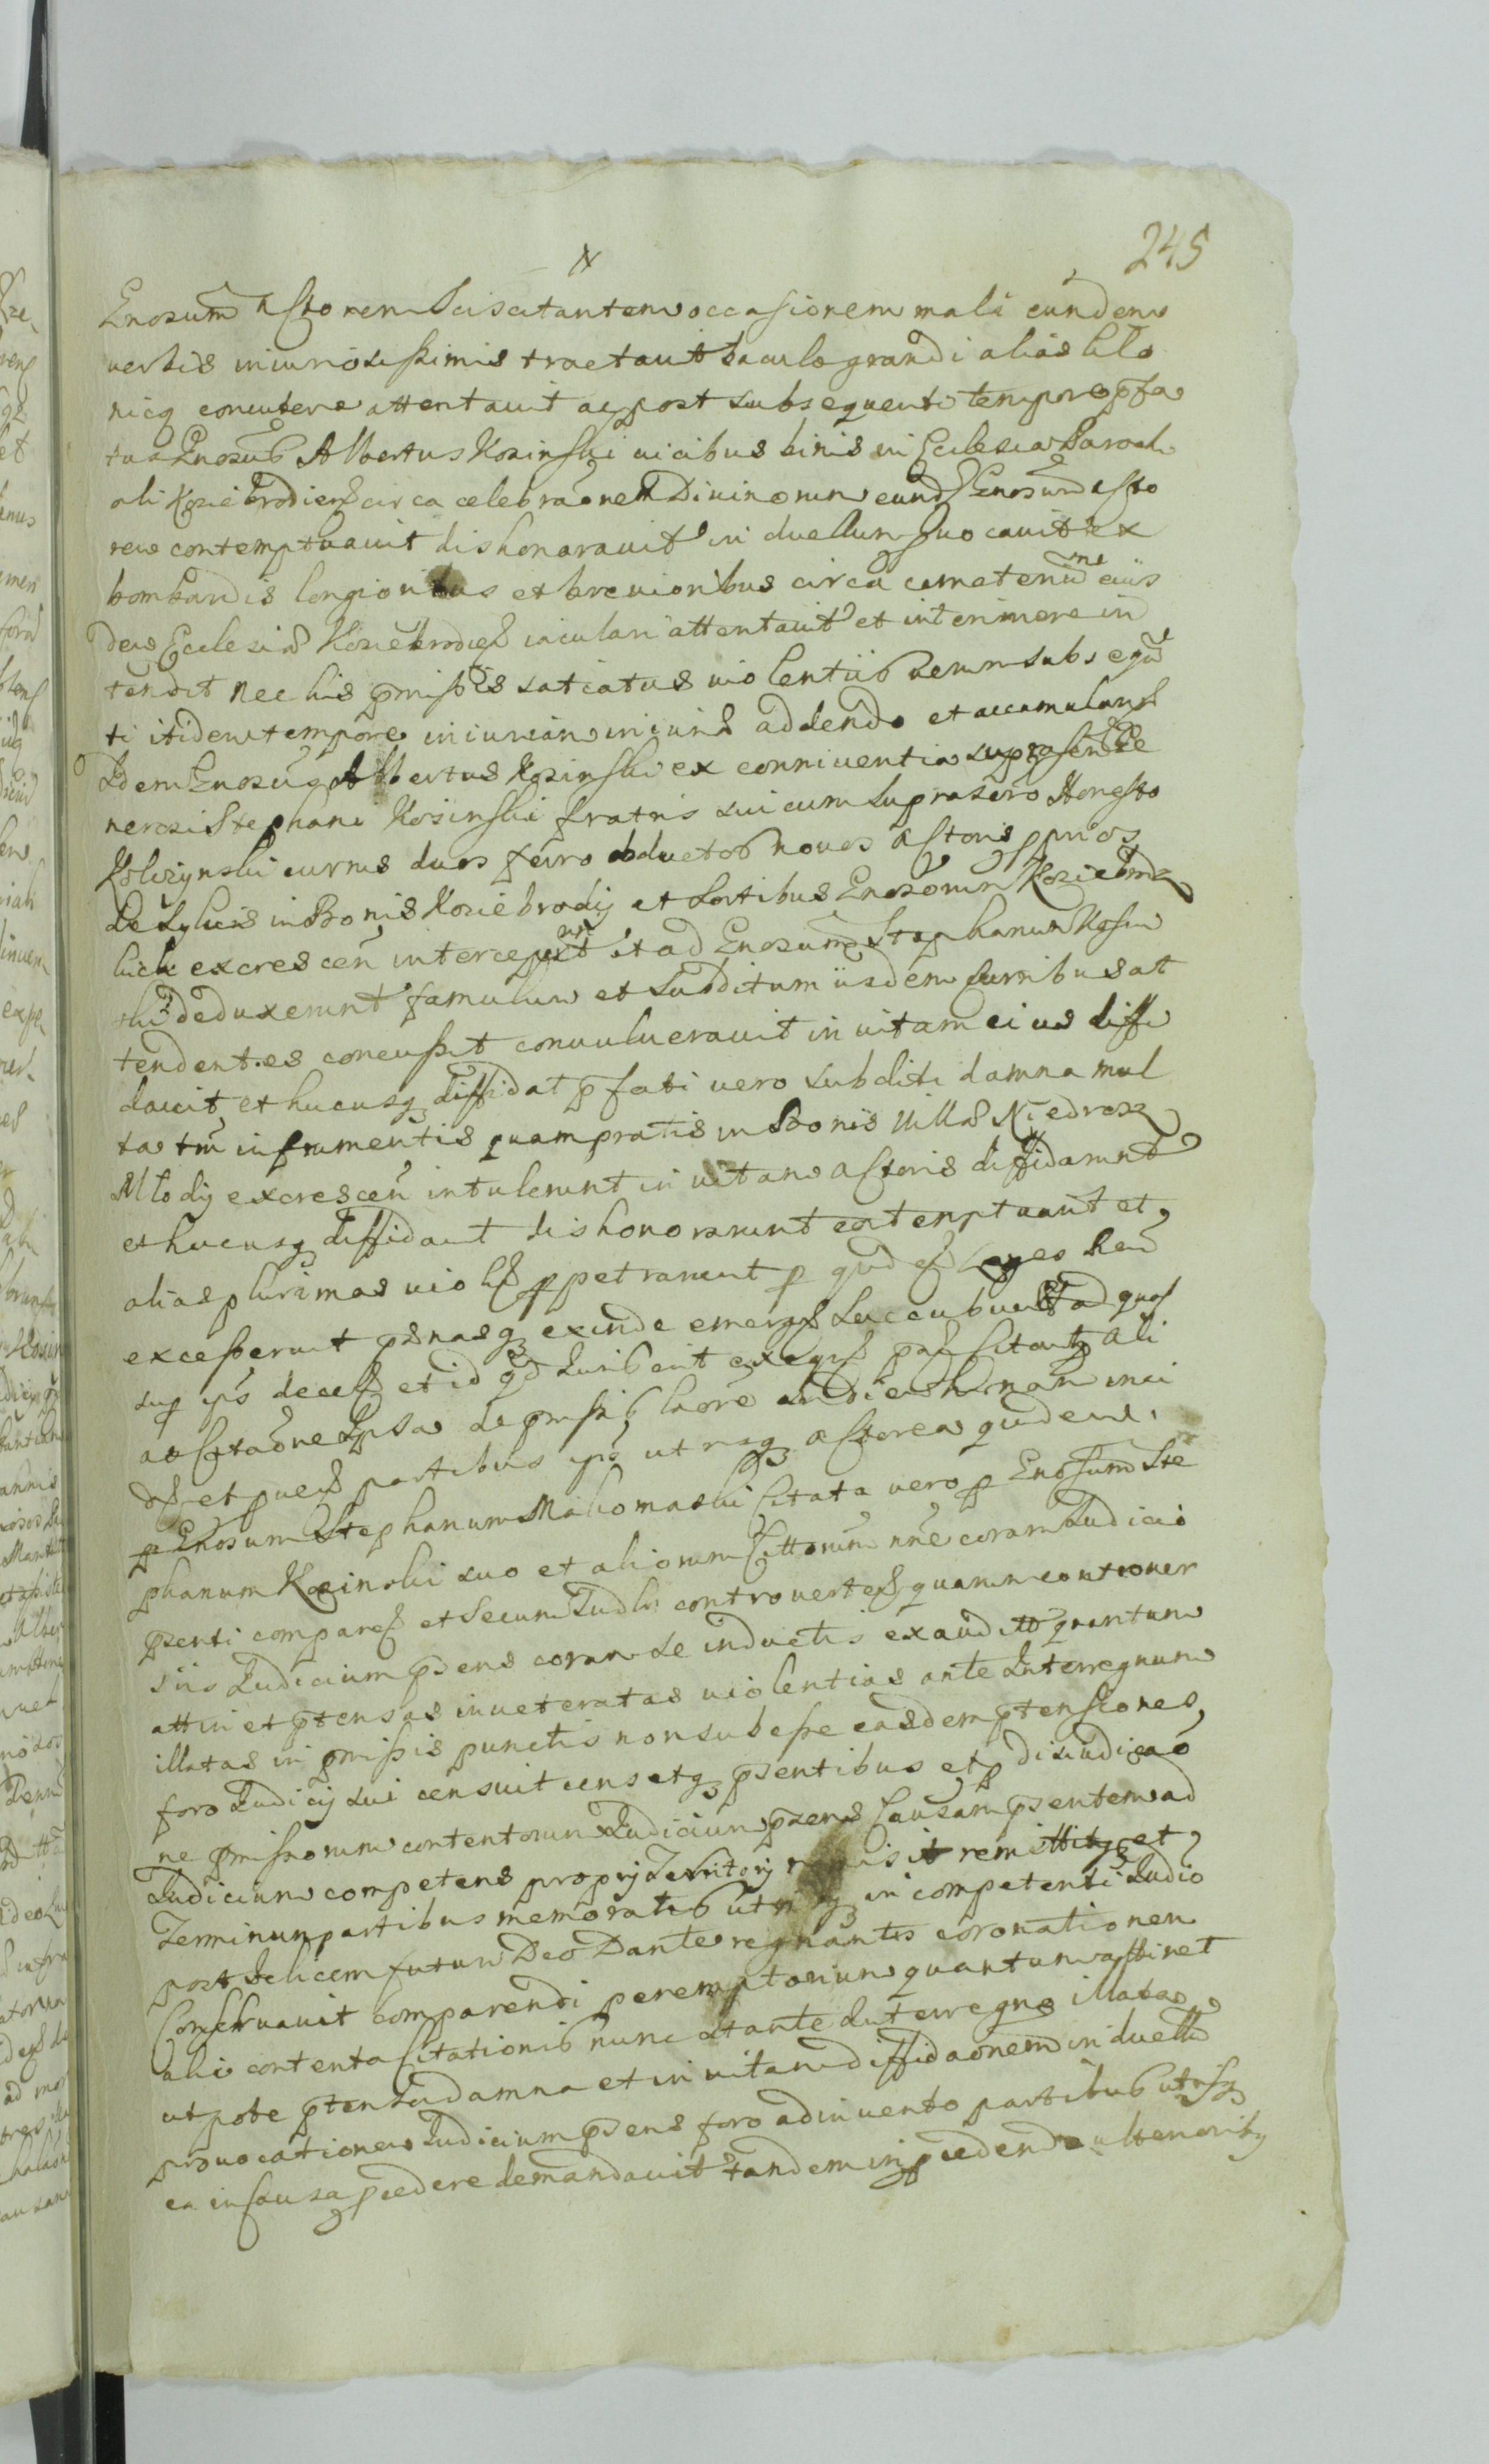 245
Gnosum Actorem sciscitantem occasionem mali eundem
verbis iniuriosissimis tractavit baculo grandi alias
concutere attentavit ac post subsequenti tempore pfa
tus Gnosus Albertus Kosinski vicibus binis in Ecclesia Paroch
ali Koziebrodien circa celebraonem Divinorum eund Gnosum Acto
rem contemptuavit dishonoravit in duellum vocavit ex
bombardis longioribus et brevioribus circa cemeterium eius
dem Ecclesiæ Koziebrodien iaculari attentavit et interimere in
tendit nec his pmissis satiatus violentiis verum subsequen
ti itidem tempore iniuriam iniuriæ addendo et accumulans
Idem Gnosus Albertus Kosinski ex conniventia suprascr Ge
nerosi Stephani Kosinski fratris sui cum suprascro Honesto
currus duos ferro obductos novos Actoris prios
de Sylvis in Bonis Koziebrody et Sortibus Gnosorum Koziebrodz
kich excrescen interceperunt et ad Gnosum Stephanum Kosin
ski deduxerunt famulum et Subditum iisdem Curribus at
tendentes concussit convulneravit in vitam eius diffi
davit et hucusq diffidat pfati vero subditi damna mul
ta tm in frumentis quam pratis in Bonis Villæ Niedroz
Mlody excrescen intulerunt in vitam Actoris diffidarunt
et hucusq diffidant dishonorarunt contemptuarunt et
alias plurimas viol ppetrarunt p qud Leges Regni
excesserunt pænasq exinde emerg succubuerunt ad quas
sup ips decer et id qd Iuris erit
Citaone Ipsa de pmissis
et partibus ips utrisq Actorea quidem
p Gnosum Stephanum Makomaski Citata vero p Gnosum Ste
phanum Kosinski suo et aliorum Cittorum nne coram Iudicio
psenti comparen et secum Iudlr controverten quarum controver
siis Iudicium psens coram se inductis exauditis quantum
attinet ptensas inveteratas violentias ante Interregnum
illatas in pmissis punctis non subesse easdem ptensiones
foro Iudicij sui censuit censetq psentibus et p diiudicao
ne pmissorum contentorum Iudicium psens Causam psentem ad
Iudicium competens proprij Territorij remisit remittitq et
Terminum partibus memoratis utrisq in competenti Iudio
post felicem futuri Deo Dante regnantis coronationem
Conservavit comparendi peremptorium quantum attinet
alia contenta Citationis nunc stante Interregno illatas
utpote ptensa damna et in vitam diffidaonem in duellu
provocationem Iudicium psens foro adinvento partibus utrisq
ea in Causa pcedere demandavit tandem in pcedendo ulteriorib